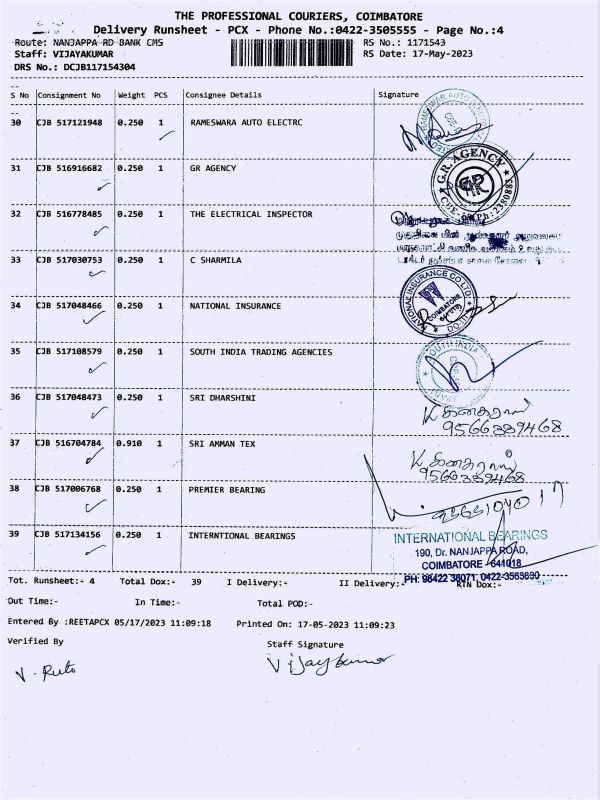 THE PROFESSIONAL COURIERS, COIMBATORE
Delivery Runsheet - PCX - Phone No.:0422-3505555 - Page No.:4
Route: NANJAPPA RD BANK CMS RS No.: 1171543
Staff: VIJAYAKUMAR RS Date: 17-May-2023
DRS No.: DCJB117154304
S No Consignment No Weight PCS Consignee Details Signature
30 CJB 517121948 0.250 1 RAMESWARA AUTO ELECTRC
31 CJB 516916682 0.250 1 GR AGENCY
G.R. AGENCY
32 CJB 516778485 0.250 1 THE ELECTRICAL INSPECTOR
33 CJB 517030753 0.250 1 C SHARMILA
34 CJB 517048466 0.250 1 NATIONAL INSURANCE
NATIONAL INSURANCE CO LTD.
COIMBATORE
35 CJB 517108579 0.250 1 SOUTH INDIA TRADING AGENCIES
SOUTH INDIA
36 CJB 517048473 0.250 1 SRI DHARSHINI
9566389468
37 CJB 516704784 0.910 1 SRI AMMAN TEX
9566389468
38 CJB 517006768 0.250 1 PREMIER BEARING
39 CJB 517134156 0.250 1 INTERNTIONAL BEARINGS
INTERNATIONAL BEARINGS
190, Dr. NANJAPPA ROAD,
COIMBATORE - 641018
PH: 98422 38071, 0422-3563690
Tot. Runsheet:- 4 Total Dox:- 39 I Delivery:- II Delivery:- RTN Dox:-
Out Time:- In Time:- Total POD:-
Entered By :REETAPCX 05/17/2023 11:09:18 Printed On: 17-05-2023 11:09:23
Verified By Staff Signature
Vijaykumar